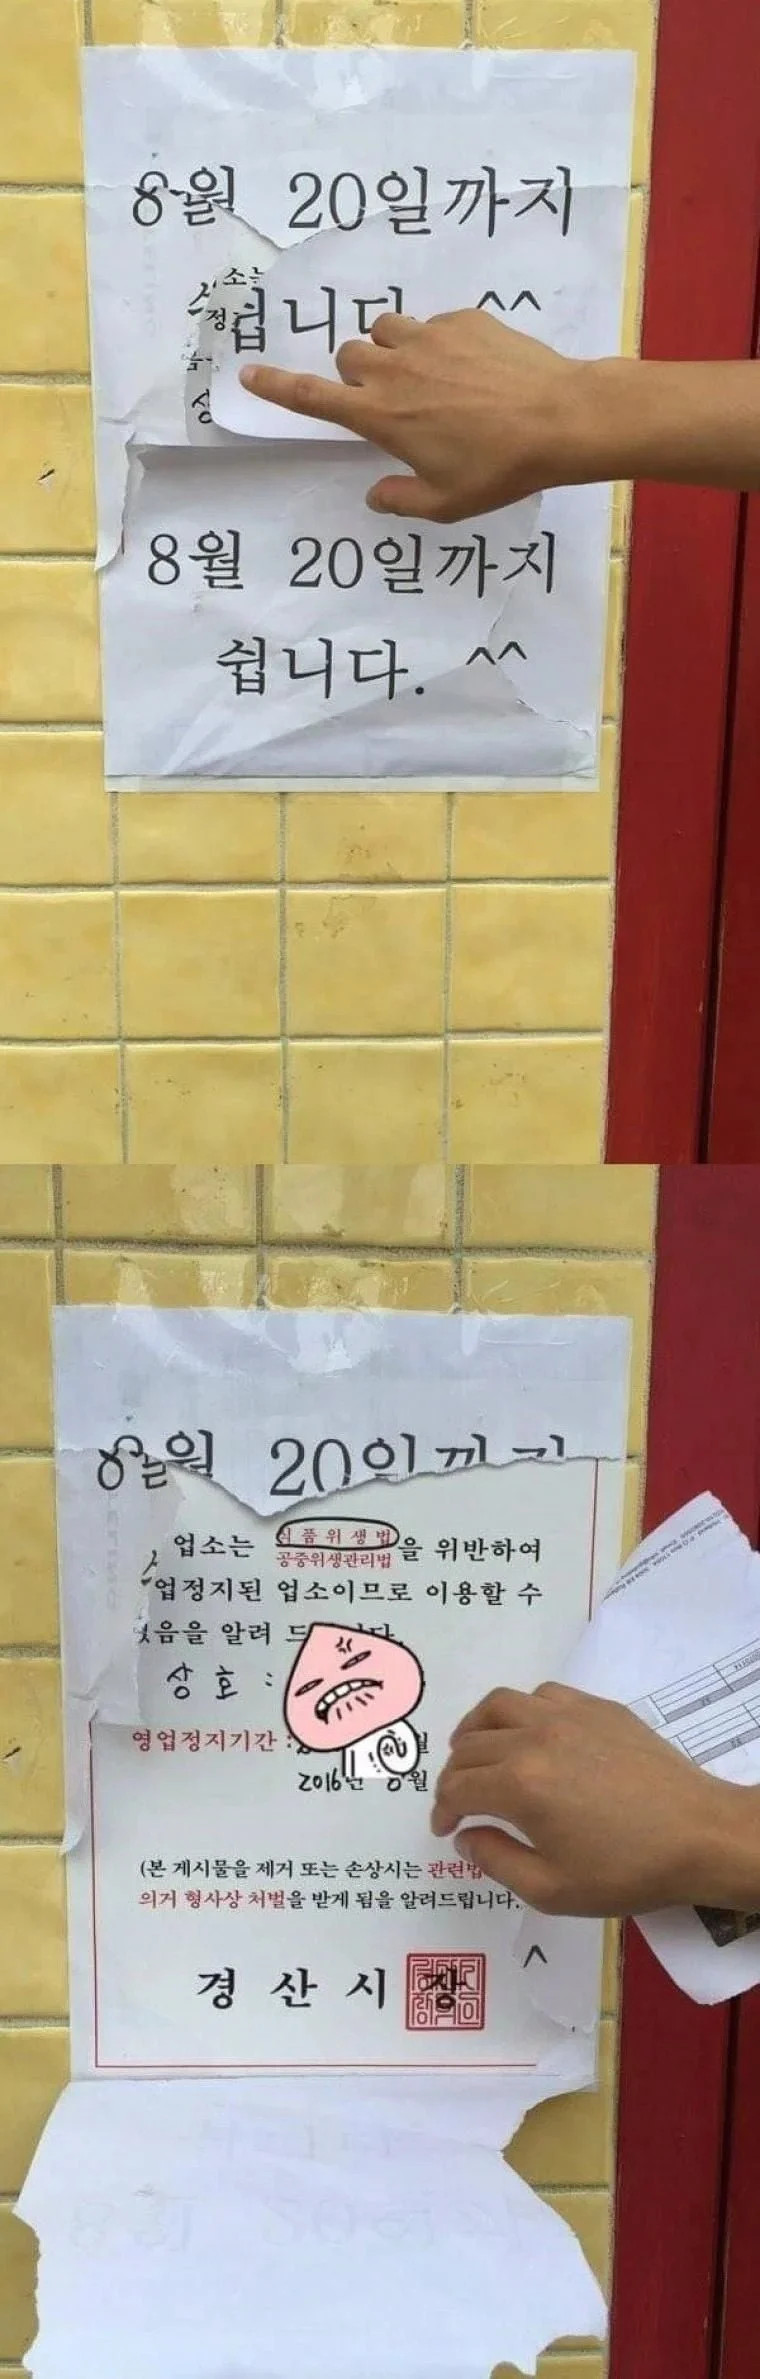 8월 20일까지
소는
정
쉽니다. ^^
상
8월 20일까지
쉽니다. ^^
8월 20일까지
업소는 식품위생법
공중위생관리법 을 위반하여
업정지된 업소이므로 이용할 수
없음을 알려 드
상호 :
영업정지기간 :
2016년 8월
(본 게시물을 제거 또는 손상시는 관련법
의거 형사상 처벌을 받게 됨을 알려드립니다.
^
경산시장